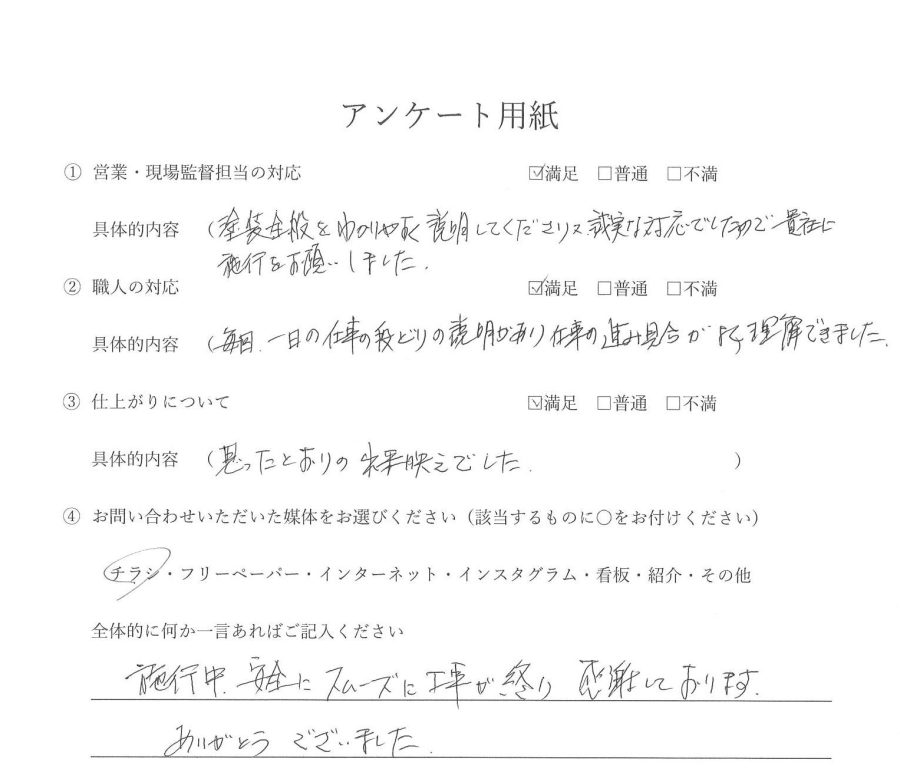 アンケート用紙
① 営業・現場監督担当の対応 ☑満足 □普通 □不満
具体的内容 (塗装全般をわかりやすく説明してくださり又誠実な対応でしたので貴社に
施行をお願いしました.
② 職人の対応 ☑満足 □普通 □不満
具体的内容 (毎日、一日の仕事の段どりの説明があり仕事の進み具合がよく理解できました.
③ 仕上がりについて ☑満足 □普通 □不満
具体的内容 (思ったとおりの出来映えでした. )
④ お問い合わせいただいた媒体をお選びください（該当するものに〇をお付けください）
チラシ・フリーペーパー・インターネット・インスタグラム・看板・紹介・その他
全体的に何か一言あればご記入ください
施行中、安全にスムーズに工事が終り 感謝しております.
ありがとうございました.